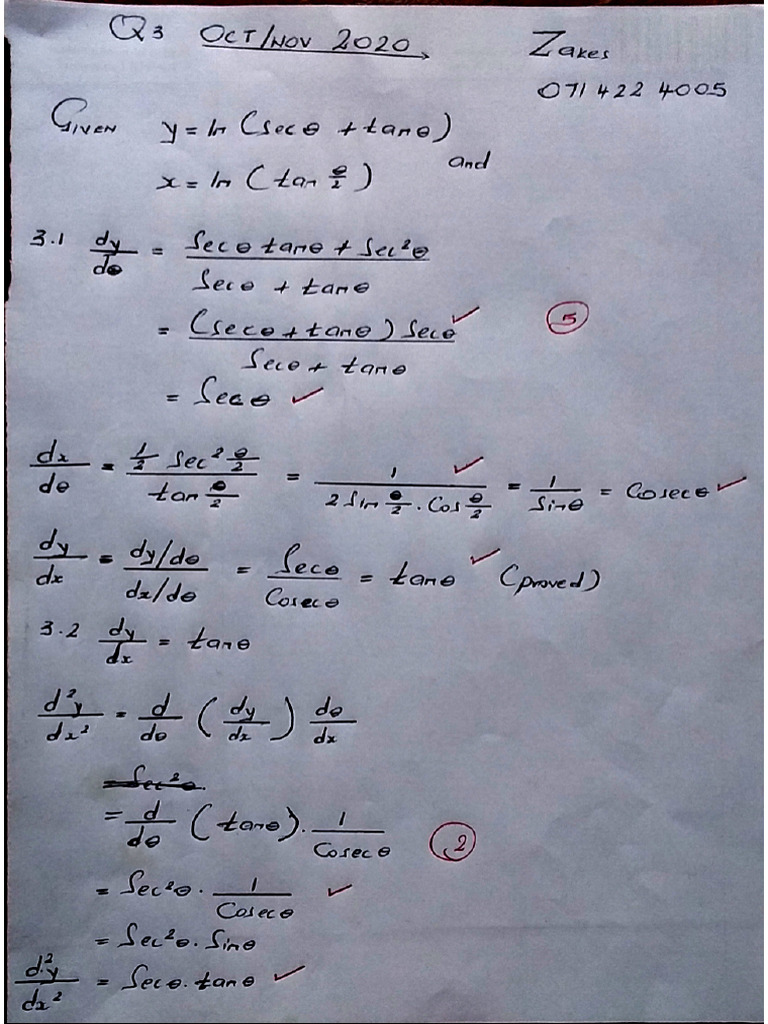 Q3 OCT/NOV 2020
Zakes
071 422 4005
GIVEN y = ln (secθ + tanθ)
and
x = ln (tan θ/2)
3.1 dy/dθ = (Secθ tanθ + Sec²θ)/(Secθ + tanθ)
= ((secθ + tanθ) Secθ)/(Secθ + tanθ) ✓
5
= Secθ ✓
dx/dθ = (1/2 Sec² θ/2)/(tan θ/2) = 1/(2 Sin θ/2 . Cos θ/2) ✓ = 1/Sinθ = Cosecθ ✓
dy/dx = (dy/dθ)/(dx/dθ) = Secθ/Cosecθ = tanθ ✓ (proved)
3.2 dy/dx = tanθ
d²y/dx² = d/dθ (dy/dx) dθ/dx
= Sec²θ.
= d/dθ (tanθ) . 1/Cosecθ
2
= Sec²θ . 1/Cosecθ ✓
= Sec²θ . Sinθ
d²y/dx² = Secθ . tanθ ✓